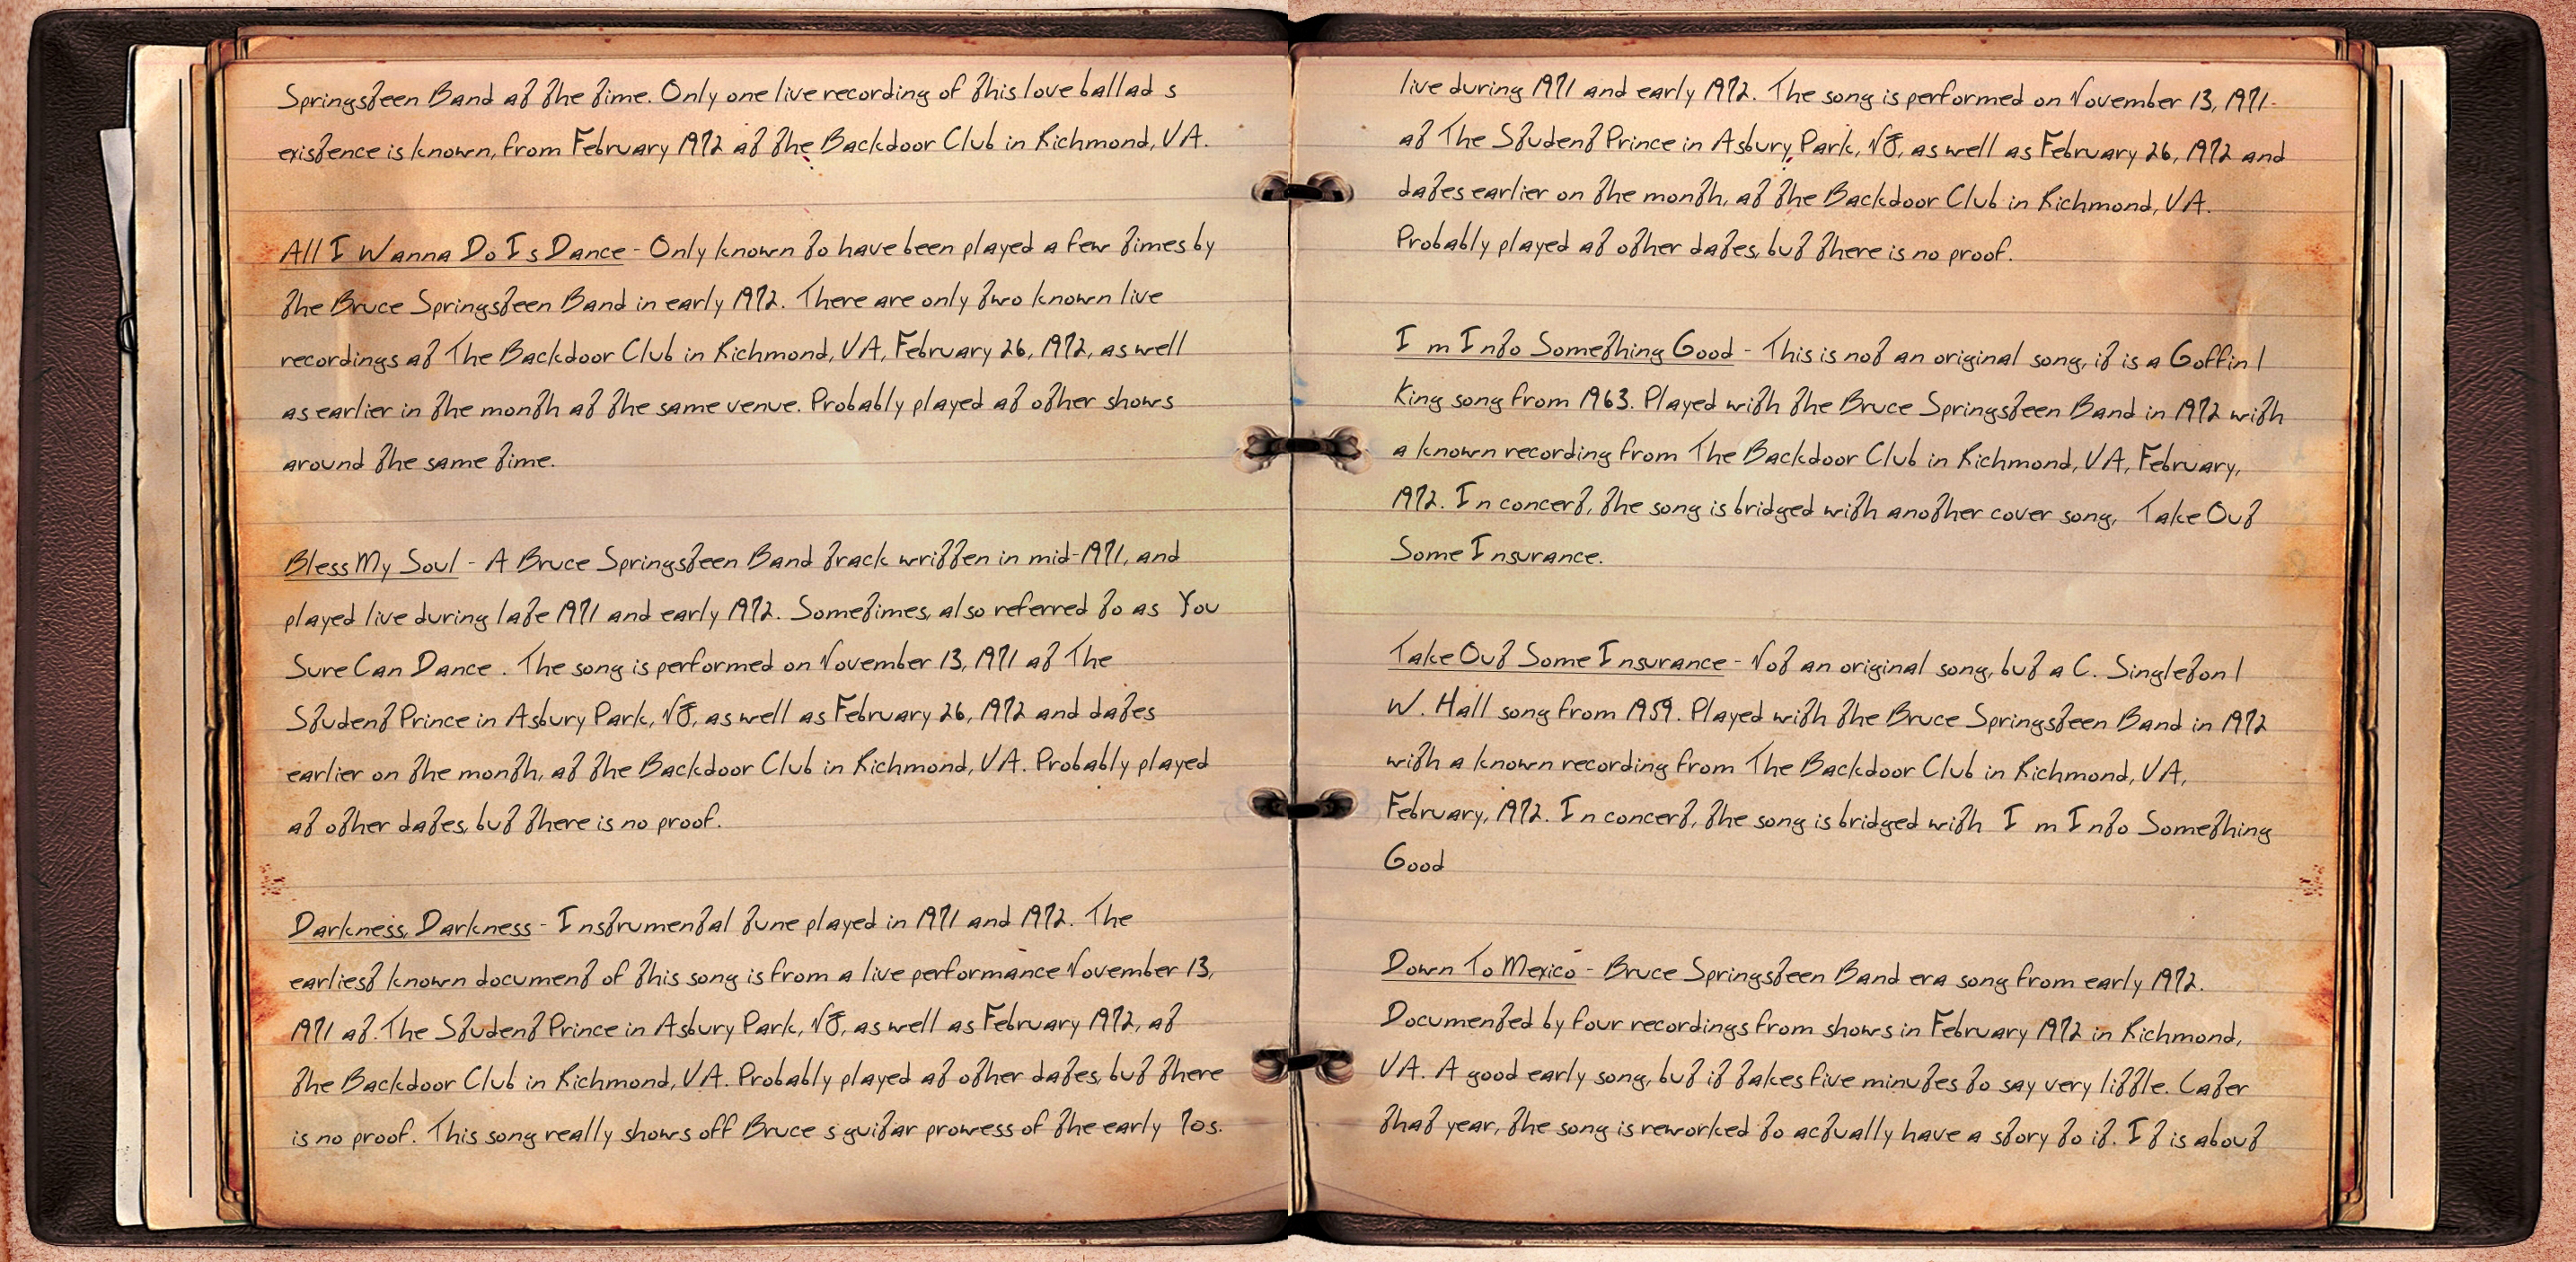 Springsteen Band at the time. Only one live recording of this love ballad s
existence is known, from February 1972 at the Backdoor Club in Richmond, VA.
All I Wanna Do Is Dance - Only known to have been played a few times by
the Bruce Springsteen Band in early 1972. There are only two known live
recordings at The Backdoor Club in Richmond, VA, February 26, 1972, as well
as earlier in the month at the same venue. Probably played at other shows
around the same time.
Bless My Soul - A Bruce Springsteen Band track written in mid-1971, and
played live during late 1971 and early 1972. Sometimes, also referred to as You
Sure Can Dance . The song is performed on November 13, 1971 at The
Student Prince in Asbury Park, NJ, as well as February 26, 1972 and dates
earlier on the month, at the Backdoor Club in Richmond, VA. Probably played
at other dates, but there is no proof.
Darkness, Darkness - Instrumental tune played in 1971 and 1972. The
earliest known document of this song is from a live performance November 13,
1971 at The Student Prince in Asbury Park, NJ, as well as February 1972, at
the Backdoor Club in Richmond, VA. Probably played at other dates, but there
is no proof. This song really shows off Bruce s guitar prowess of the early 70s.
live during 1971 and early 1972. The song is performed on November 13, 1971
at The Student Prince in Asbury Park, NJ, as well as February 26, 1972 and
dates earlier on the month, at the Backdoor Club in Richmond, VA.
Probably played at other dates, but there is no proof.
I m Into Something Good - This is not an original song, it is a Goffin /
King song from 1963. Played with the Bruce Springsteen Band in 1972 with
a known recording from The Backdoor Club in Richmond, VA, February,
1972. In concert, the song is bridged with another cover song, Take Out
Some Insurance.
Take Out Some Insurance - Not an original song, but a C. Singleton /
W. Hall song from 1959. Played with the Bruce Springsteen Band in 1972
with a known recording from The Backdoor Club in Richmond, VA,
February, 1972. In concert, the song is bridged with I m Into Something
Good
Down To Mexico - Bruce Springsteen Band era song from early 1972.
Documented by four recordings from shows in February 1972 in Richmond,
VA. A good early song, but it takes five minutes to say very little. Later
that year, the song is reworked to actually have a story to it. It is about